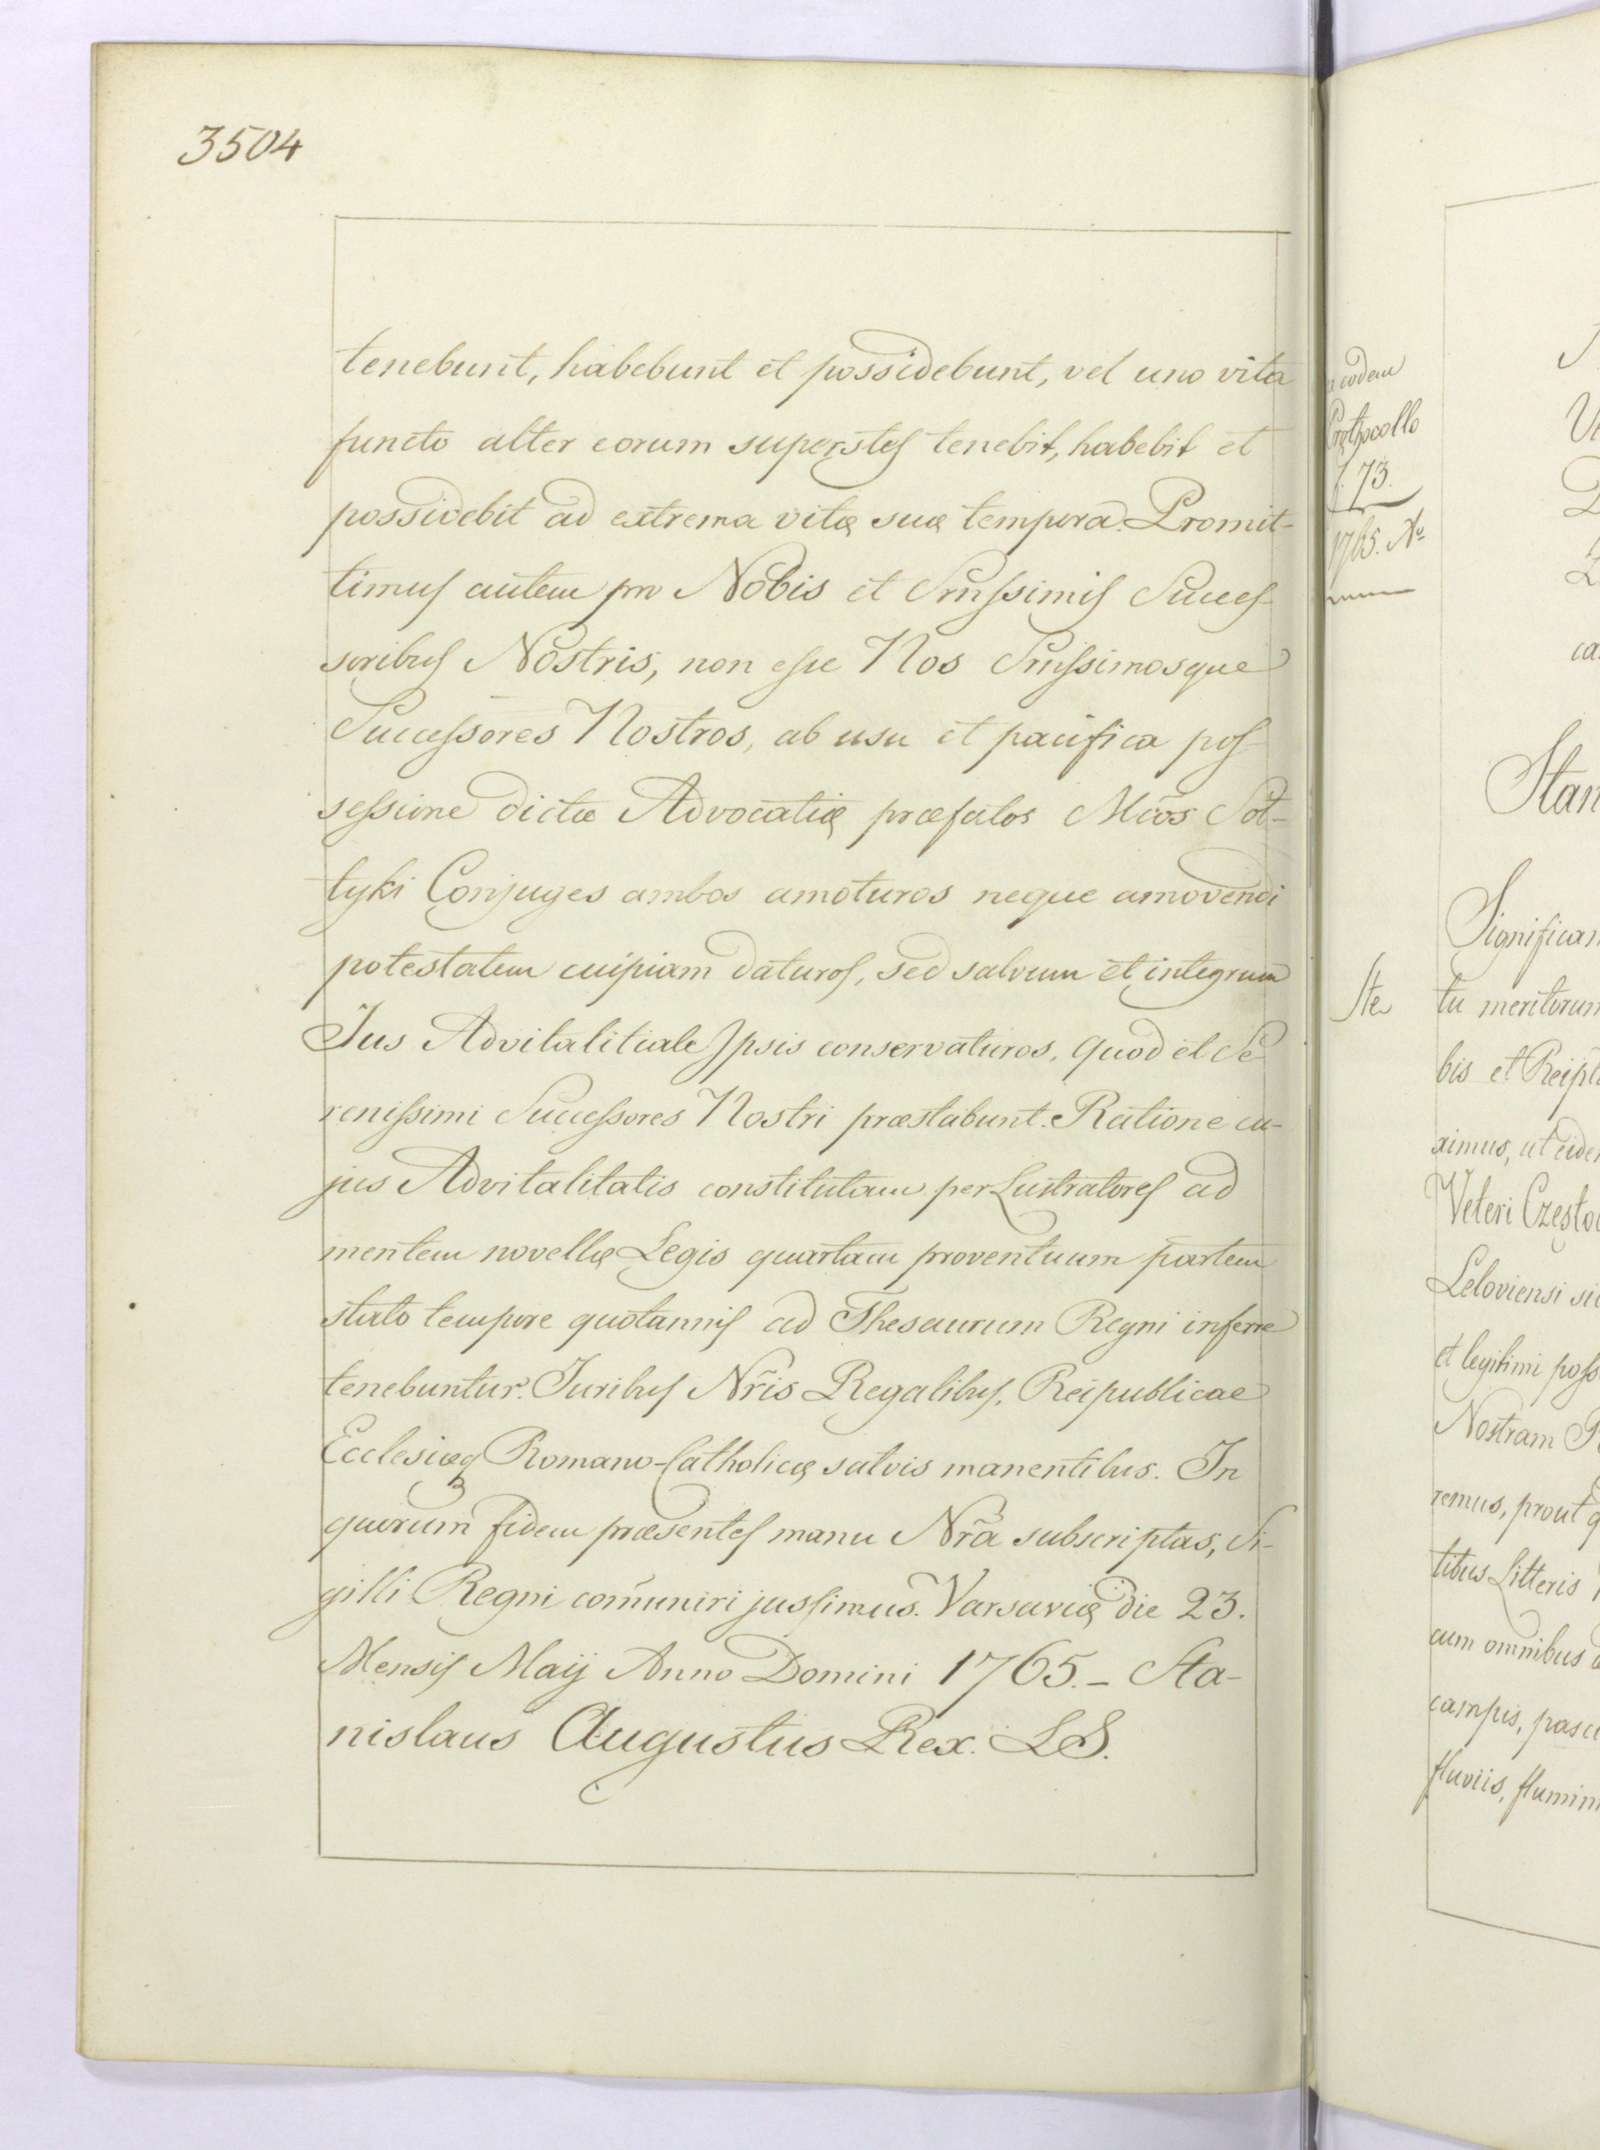 3504
tenebunt, habebunt et possidebunt, vel uno vita
functo alter eorum superstes tenebit, habebit et
possidebit ad extrema vitę suæ tempora. Promit-
timus autem pro Nobis et Srnssimis Succes-
soribus Nostris, non esse Nos Srnssimosque
Successores Nostros, ab usu et pacifica pos-
sessione dictæ Advocatię præfatos Mcos Sot-
tyki Conjuges ambos amoturos neque amovendi
potestatem cuipiam daturos, sed salvum et integrum
Jus Advitalitiale Ipsis conservaturos, quod et Se-
renissimi Successores Nostri præstabunt. Ratione cu-
jus Advitalitatis constitutam per Lustratores ad
mentem novellę Legis quartam proventuum partem
stato tempore quotannis ad Thesaurum Regni inferre
tenebuntur. Juribus Nris Regalibus, Reipublicae
Ecclesiæq Romano-Catholicę salvis manentibus. In
quorum fidem præsentes manu Nrã subscriptas, Si-
gilli Regni com̃uniri jussimus. Varsavię die 23.
Mensis Maij Anno Domini 1765. – Sta-
nislaus Augustus Rex. LS.
eodem
Prothocollo
f. 73.
1765. Xº
Stan
Significam
Ste tu meritorum
bis et Reipl
ximus, ut eide
Veteri Częstoc
Leloviensi si
et legitimi poss
Nostram
remus, prout q
tibus Litteris
cum omnibus
campis, pascu
fluviis, flumin